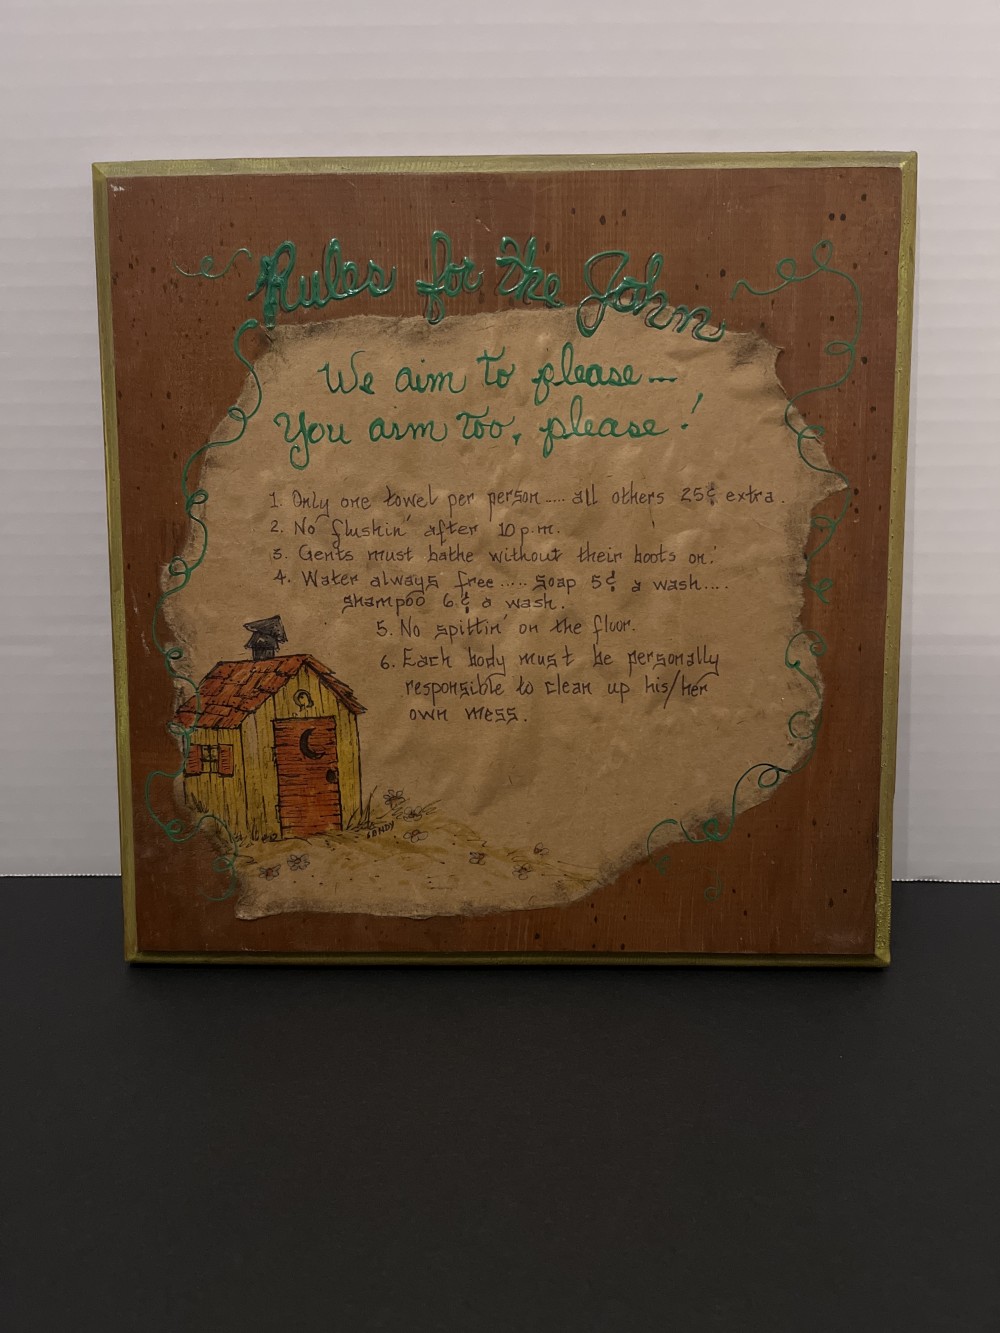 Rules for the John
We aim to please...
You aim too, please!
1. Only one towel per person..... all others 25¢ extra.
2. No flushin' after 10 p.m.
3. Gents must bathe without their boots on.
4. Water always free..... soap 5¢ a wash....
shampoo 6¢ a wash.
5. No spittin' on the floor.
6. Each body must be personally
responsible to clean up his/her
own mess.